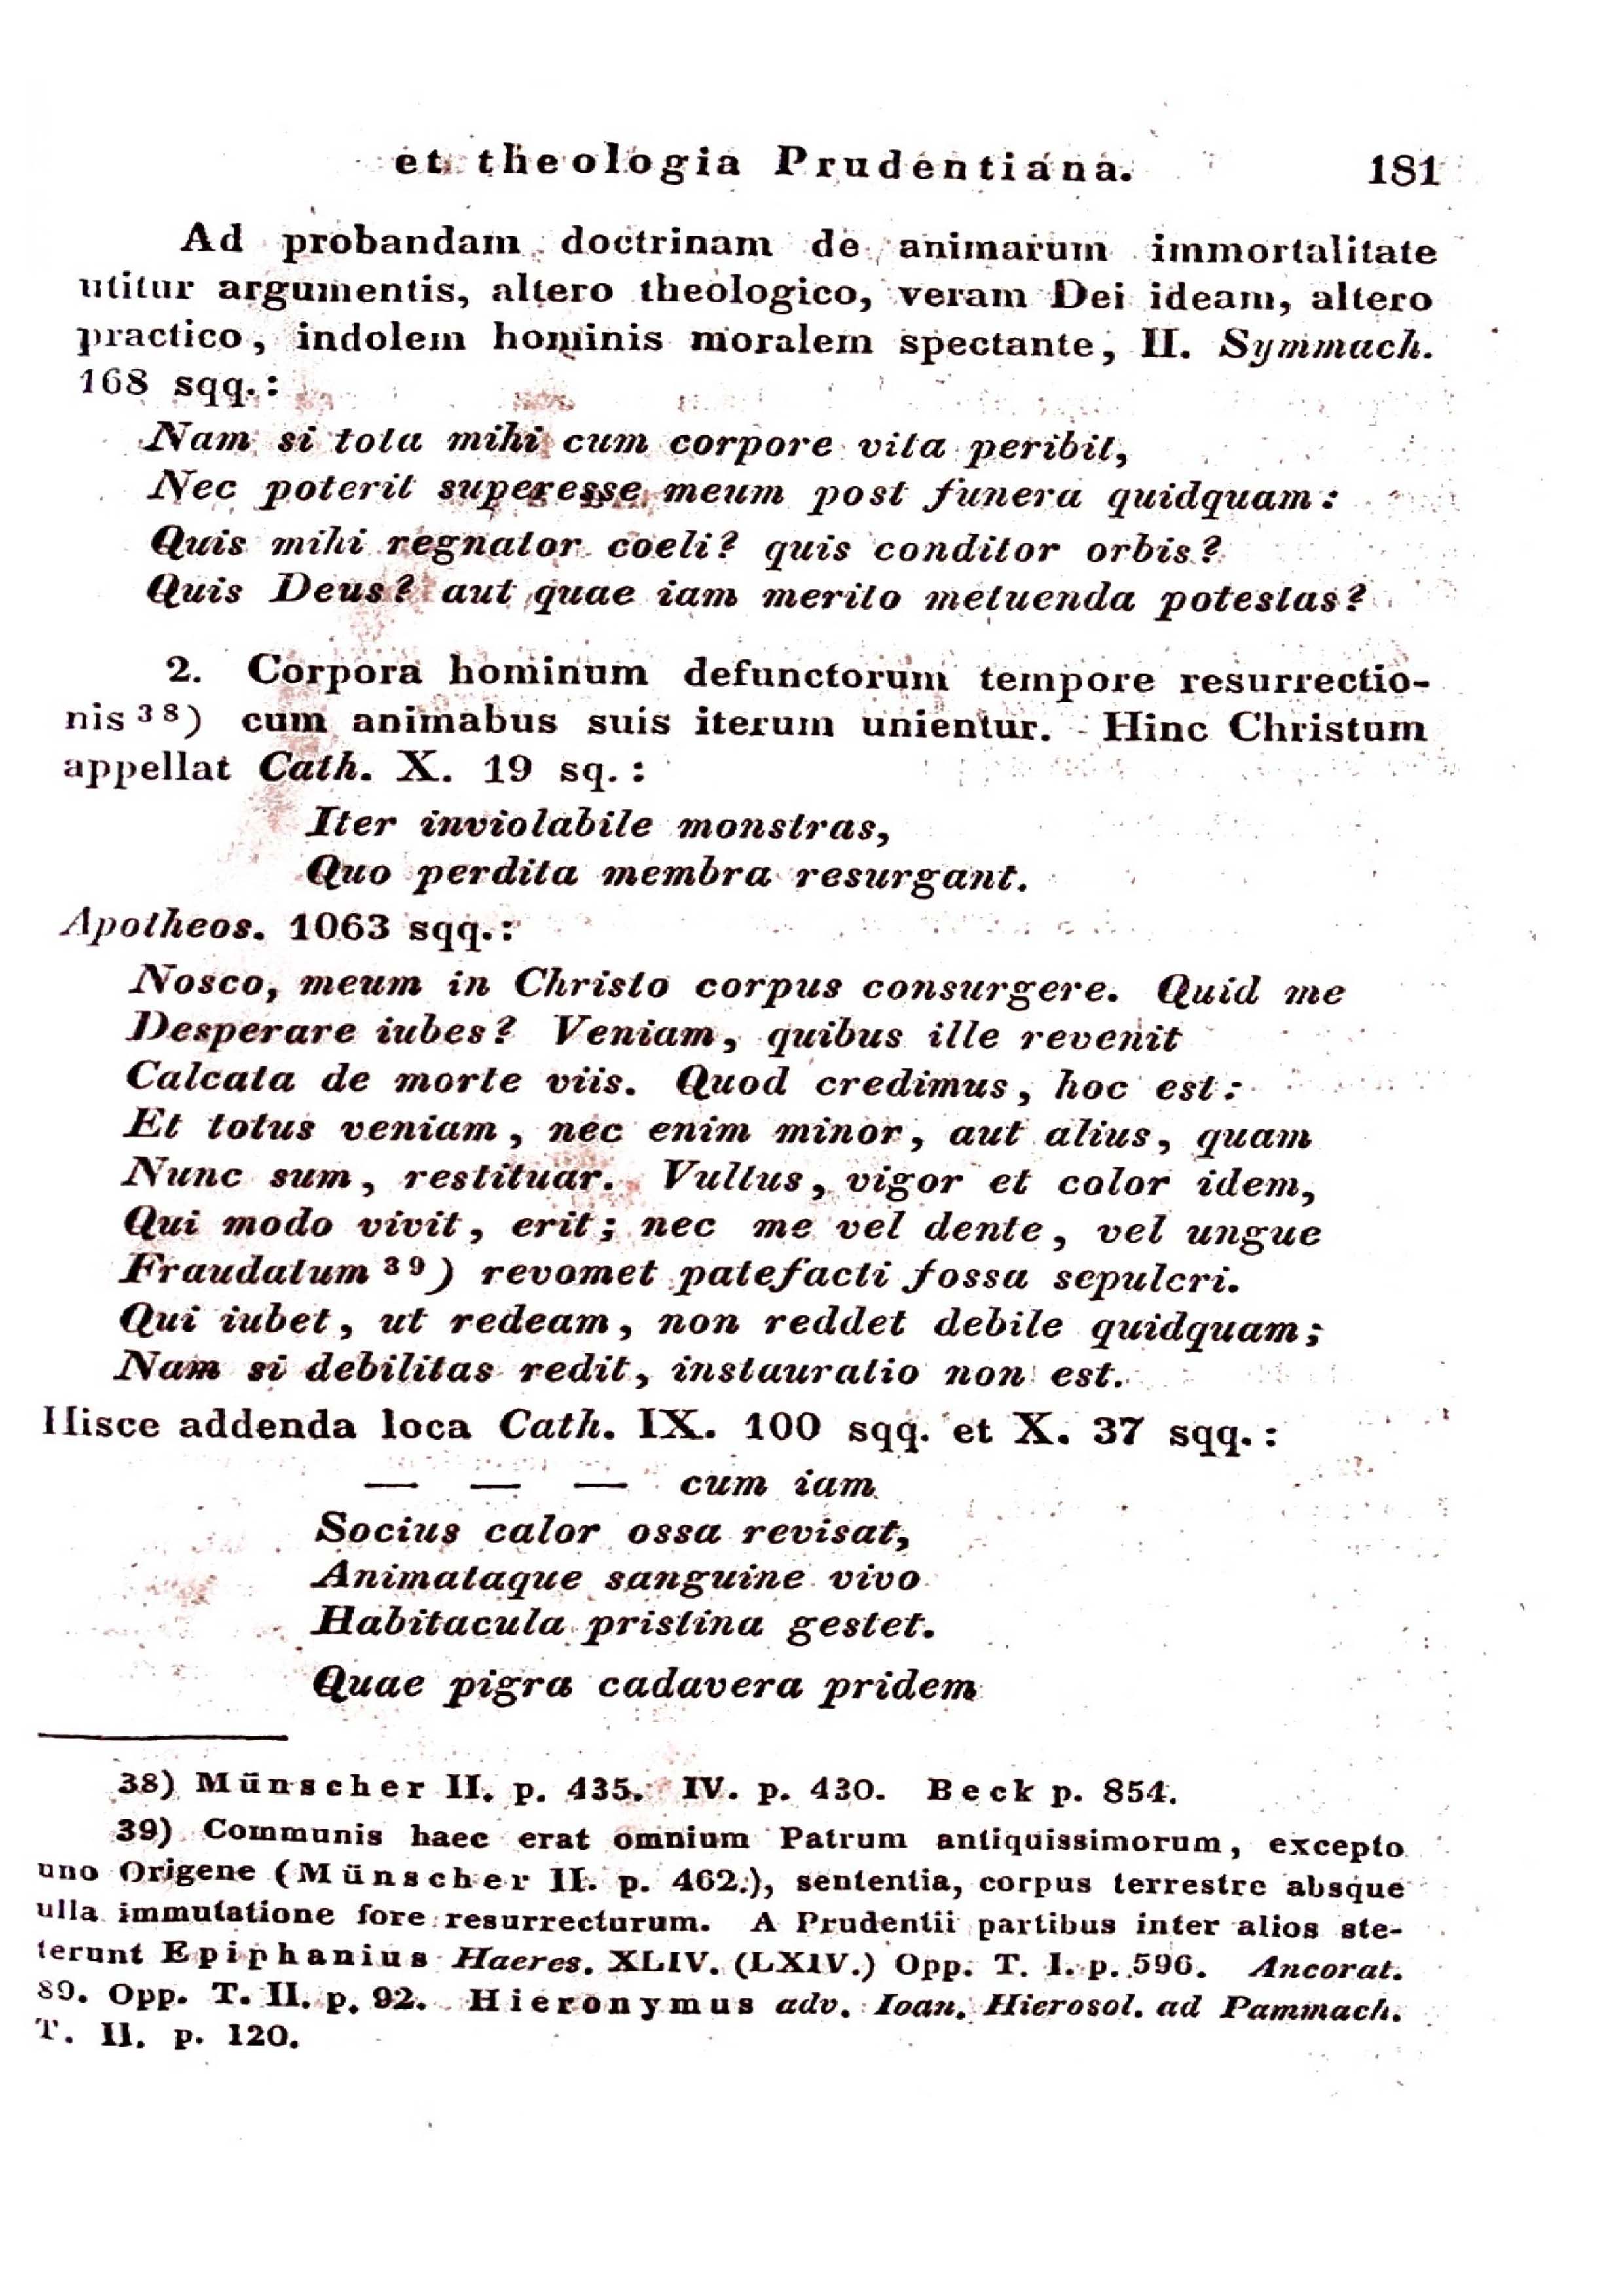 et theologia Prudentiana. 181
Ad probandam doctrinam de animarum immortalitate
utitur argumentis, altero theologico, veram Dei ideam, altero
practico, indolem hominis moralem spectante, II. Symmach.
168 sqq.:
Nam si tota mihi cum corpore vita peribit,
Nec poterit superesse meum post funera quidquam:
Quis mihi regnator coeli? quis conditor orbis?
Quis Deus? aut quae iam merito metuenda potestas?
2. Corpora hominum defunctorum tempore resurrectio-
nis 38) cum animabus suis iterum unientur. Hinc Christum
appellat Cath. X. 19 sq.:
Iter inviolabile monstras,
Quo perdita membra resurgant.
Apotheos. 1063 sqq.:
Nosco, meum in Christo corpus consurgere. Quid me
Desperare iubes? Veniam, quibus ille revenit
Calcata de morte viis. Quod credimus, hoc est:
Et totus veniam, nec enim minor, aut alius, quam
Nunc sum, restituar. Vultus, vigor et color idem,
Qui modo vivit, erit; nec me vel dente, vel ungue
Fraudatum 39) revomet patefacti fossa sepulcri.
Qui iubet, ut redeam, non reddet debile quidquam;
Nam si debilitas redit, instauratio non est.
Hisce addenda loca Cath. IX. 100 sqq. et X. 37 sqq.:
— — — cum iam
Socius calor ossa revisat,
Animataque sanguine vivo
Habitacula pristina gestet.
Quae pigra cadavera pridem
38) Münscher II. p. 435. IV. p. 430. Beck p. 854.
39) Communis haec erat omnium Patrum antiquissimorum, excepto
uno Origene (Münscher II. p. 462.), sententia, corpus terrestre absque
ulla immutatione fore resurrecturum. A Prudentii partibus inter alios ste-
terunt Epiphanius Haeres. XLIV. (LXIV.) Opp. T. I. p. 596. Ancorat.
89. Opp. T. II. p. 92. Hieronymus adv. Ioan. Hierosol. ad Pammach.
T. II. p. 120.